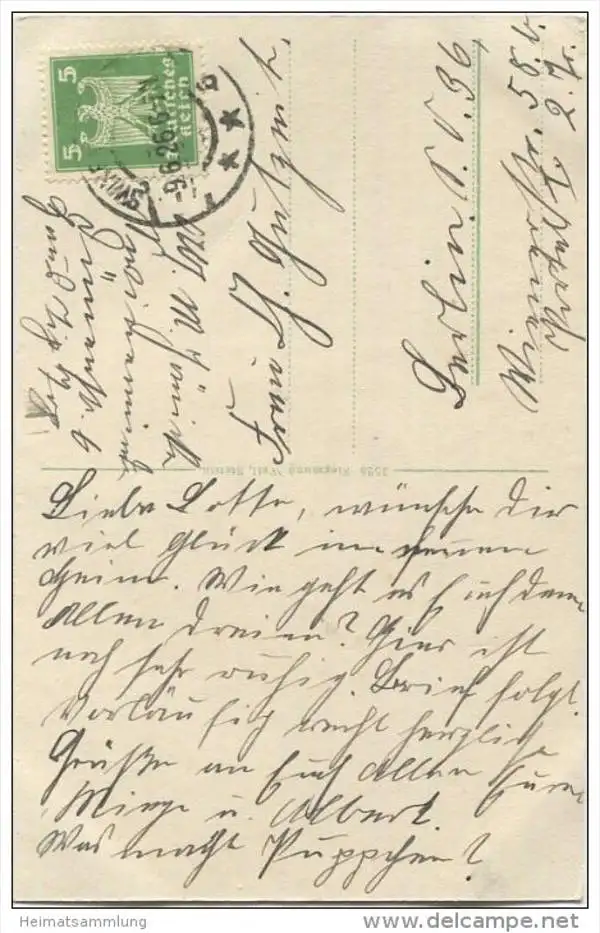 5
5
Deutsches
Reich
-9.6.26.6-7N
b
Frau H.
Berlin S.O. 36
Wiener Str. 58.b.
2.T.
Abs. M.
Swinemünde
3528 Siegmund Weil, Stettin
Liebe Lotte, wünsche Dir
viel Glück im neuen
Heim. Wie geht es Euch denn
Allen dreien? Hier ist
noch sehr ruhig. Brief folgt.
Vorläufig recht herzliche
Grüße an Euch Allen Eure
Mieze u. Albert.
Was macht Püppchen?
Heimatsammlung
www.delcampe.net